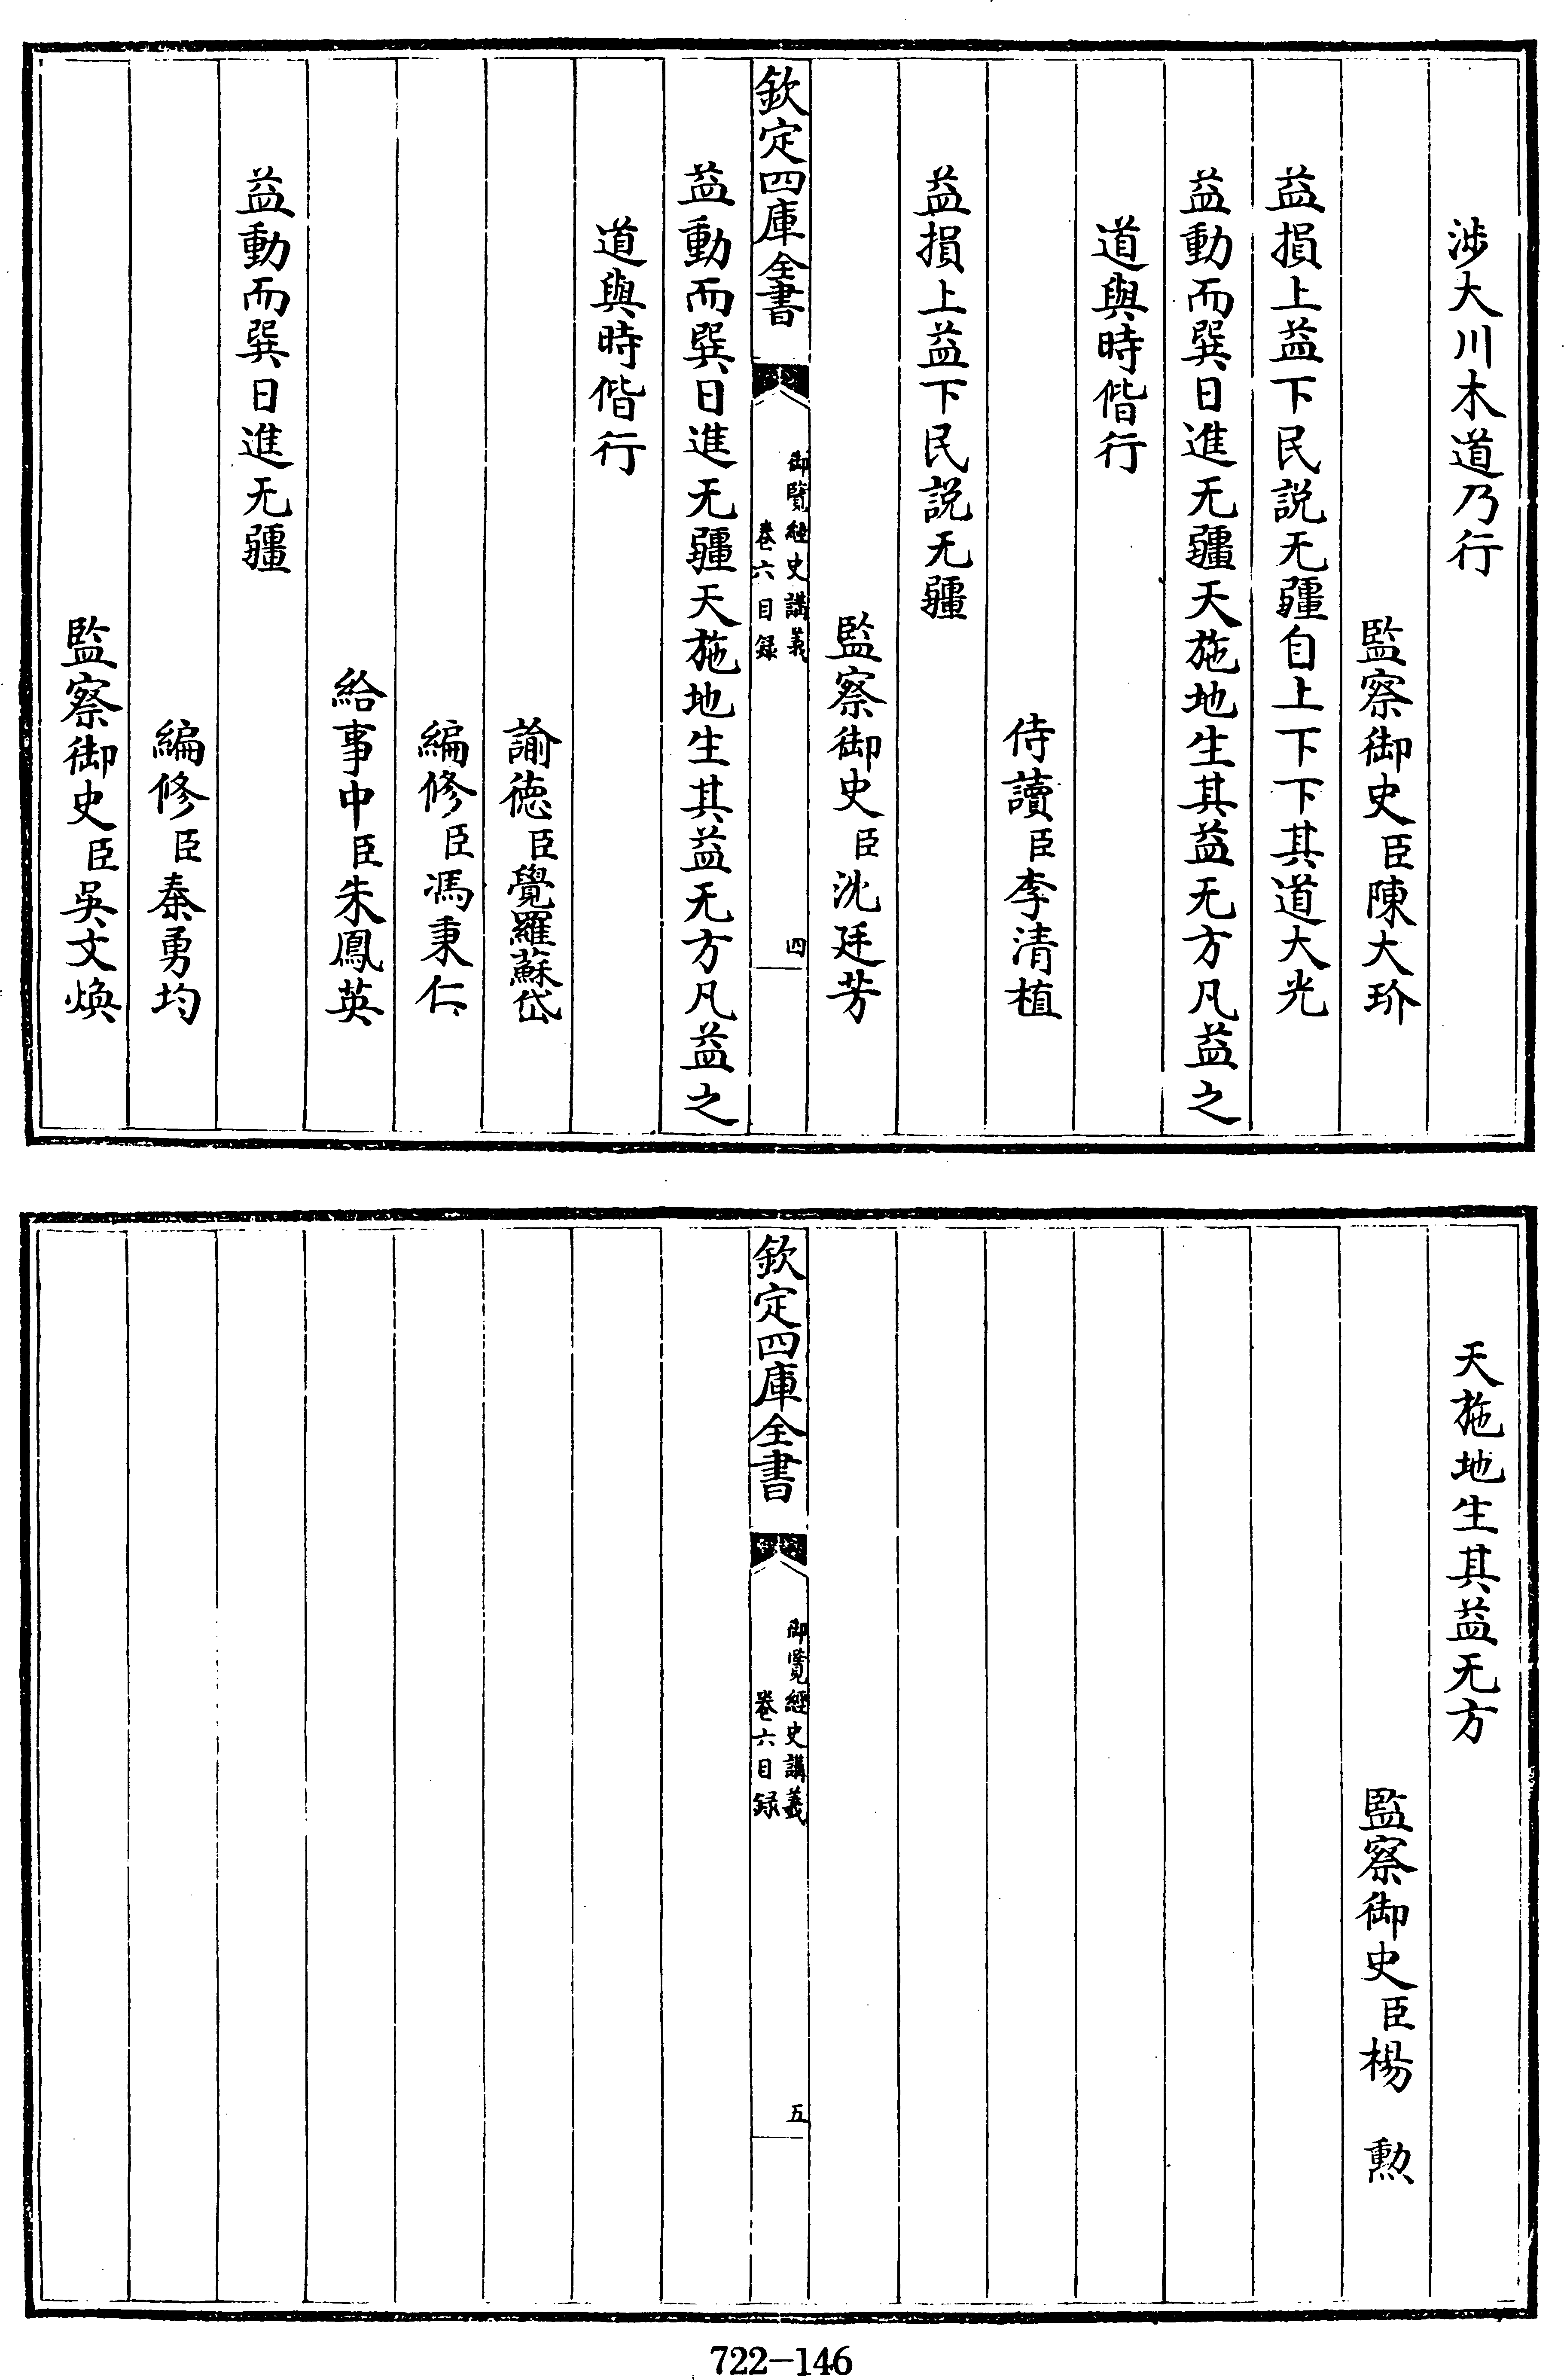 涉大川木道乃行
監察御史臣陳大玠
益損上益下民說无疆自上下下其道大光
益動而巽日進无疆天施地生其益无方凡益之
道與時偕行
侍讀臣李清植
益損上益下民說无疆
監察御史臣沈廷芳
欽定四庫全書
御覽經史講義
卷六目録
四
益動而巽日進无疆天施地生其益无方凡益之
道與時偕行
諭德臣覺羅蘇岱
編修臣馮秉仁
給事中臣朱鳳英
益動而巽日進无疆
編修臣秦勇均
監察御史臣吳文煥
天施地生其益无方
監察御史臣楊 勲
欽定四庫全書
御覽經史講義
卷六目録
五
722-146